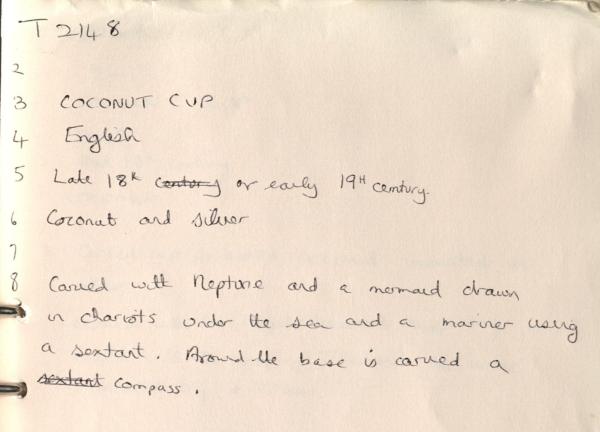 T 2148
2
3 COCONUT CUP
4 English
5 Late 18th century or early 19TH century.
6 Coconut and silver
7
8 Carved with Neptune and a mermaid drawn
in chariots under the sea and a mariner using
a sextant. Around the base is carved a
sextant compass.